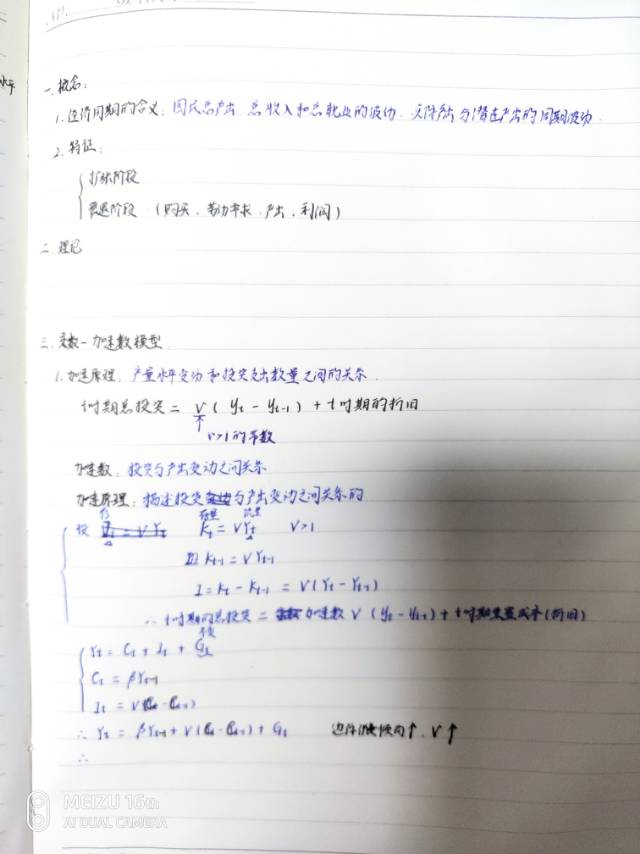 一、概念:
1. 经济周期的含义: 国民总产出、总收入和总就业的波动. 实际产出与潜在产出的周期波动.
2. 特征:
扩张阶段
衰退阶段 (购买、劳动需求、产出、利润)
二、理论
三、乘数-加速数模型
1. 加速原理: 产量水平变动和投资支出数量之间的关系.
t时期总投资 = V ( yt - yt-1 ) + t时期的折旧
V>1的系数
加速数: 投资与产出变动之间关系
加速原理: 描述投资与产出变动之间关系的
存量 流量
投 Kt = VYt V>1
Kt-1 = VYt-1
I = Kt - Kt-1 = V(Yt - Yt-1)
∴ t时期的总投资 = 加速数 V (yt - yt-1) + t时期 (折旧)
Yt = Ct + It + Gt
Ct = βYt-1
It = V(Ct - Ct-1)
∴ Yt = βYt-1 + V(Ct - Ct-1) + Gt 边际消费倾向↑、V↑
∴
MEIZU 16th
AI DUAL CAMERA